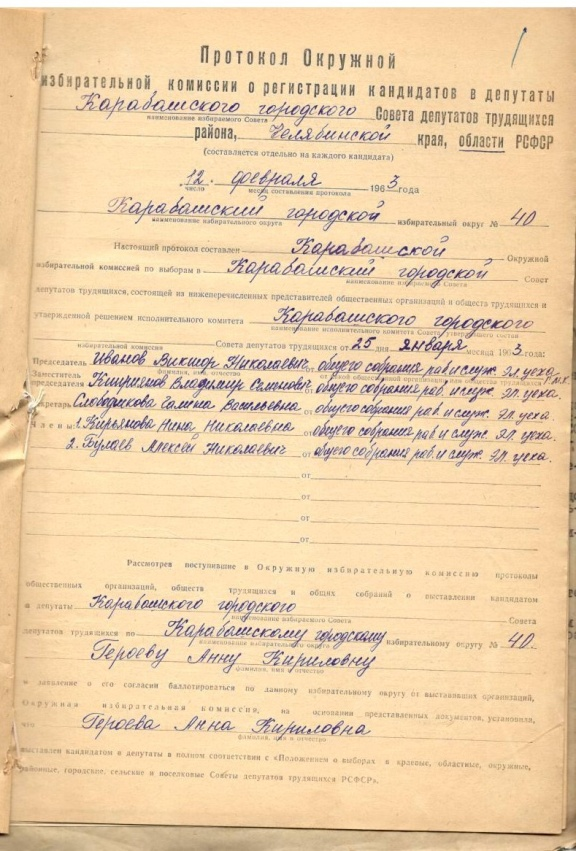 1
Протокол Окружной
избирательной комиссии о регистрации кандидатов в депутаты
Карабашского городского Совета депутатов трудящихся
наименование избираемого Совета
района, Челябинской края, области РСФСР
(составляется отдельно на каждого кандидата)
12. февраля 1963 года
число месяц составления протокола
Карабашский городской избирательный округ № 40
наименование избирательного округа
Настоящий протокол составлен Карабашской Окружной
избирательной комиссией по выборам в Карабашский городской Совет
наименование избираемого Совета
депутатов трудящихся, состоящей из нижеперечисленных представителей общественных организаций и обществ трудящихся и
утвержденной решением исполнительного комитета Карабашского городского
наименование исполнительного комитета Совета, утвердившего состав
Совета депутатов трудящихся от 25 дня января месяца 1963 года:
избирательной комиссии
Председатель Иванов Виктор Николаевич от общего собрания раб. и служ. Эл. цеха
фамилия, имя, отчество
Заместитель председателя Кириенов Владимир Семенович от общего собрания раб. и служ. Эл. цеха
Секретарь Слободчикова Галина Васильевна от общего собрания раб. и служ. Эл. цеха.
Члены: 1. Кирьянова Нина Николаевна от общего собрания раб. и служ. Эл. цеха.
2. Булаев Алексей Николаевич от общего собрания раб. и служ. Эл. цеха.
от
от
от
от
Рассмотрев поступившие в Окружную избирательную комиссию протоколы
общественных организаций, обществ трудящихся и общих собраний о выставлении кандидатом
в депутаты Карабашского городского Совета
наименование избираемого Совета
депутатов трудящихся по Карабашскому городскому избирательному округу № 40.
наименование избирательного округа
Героеву Анну Кириловну
фамилия, имя, отчество
и заявление о его согласии баллотироваться по данному избирательному округу от выставивших организаций,
Окружная избирательная комиссия, на основании представленных документов, установила,
что Героева Анна Кириловна
фамилия, имя и отчество
выставлен кандидатом в депутаты в полном соответствии с «Положением о выборах в краевые, областные, окружные,
районные, городские, сельские и поселковые Советы депутатов трудящихся РСФСР».